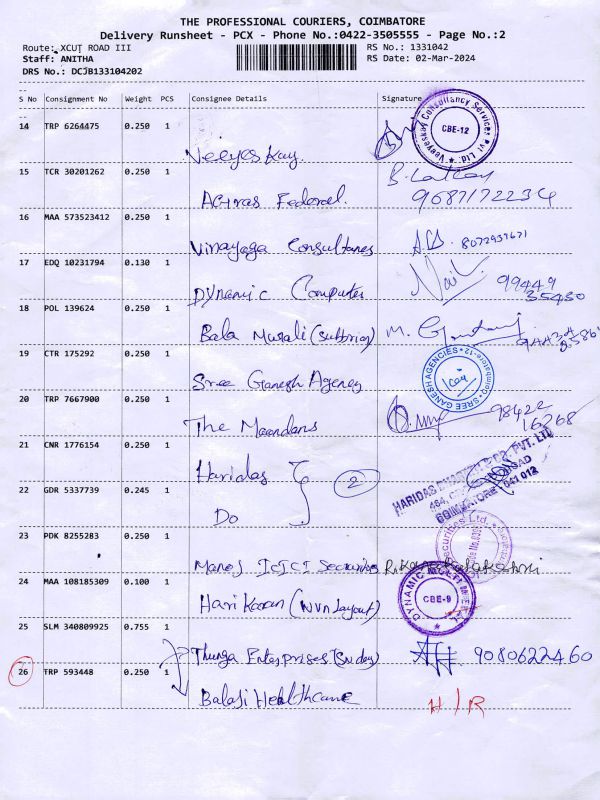 THE PROFESSIONAL COURIERS, COIMBATORE
Delivery Runsheet - PCX - Phone No.:0422-3505555 - Page No.:2
Route: XCUT ROAD III RS No.: 1331042
Staff: ANITHA RS Date: 02-Mar-2024
DRS No.: DCJB133104202
S No Consignment No Weight PCS Consignee Details Signature
14 TRP 6264475 0.250 1
Veeyes Kay.
Veeyeskay Consultancy Services Pvt Ltd.
CBE-12
15 TCR 30201262 0.250 1
Federal.
9687172234
16 MAA 573523412 0.250 1
Vinayaga Consultancy
17 EDQ 10231794 0.130 1
Dynamic Computer
99449
35430
18 POL 139624 0.250 1
Bala Murali
M.
19 CTR 175292 0.250 1
Sree Ganesh Agency
SREE GANESH AGENCIES
20 TRP 7667900 0.250 1
The
98422
16268
21 CNR 1776154 0.250 1
Haridas
2
HARIDAS PVT. LTD
COIMBATORE - 641 012
22 GDR 5337739 0.245 1
Do
23 PDK 8255283 0.250 1
Manoj ICICI Securities
Securities Ltd.
24 MAA 108185309 0.100 1
Hari Karan (NVN Layout)
DYNAMIC
CBE-9
25 SLM 340809925 0.755 1
Thunga Enterprises
9080622460
26 TRP 593448 0.250 1
Balaji Healthcare
H/R